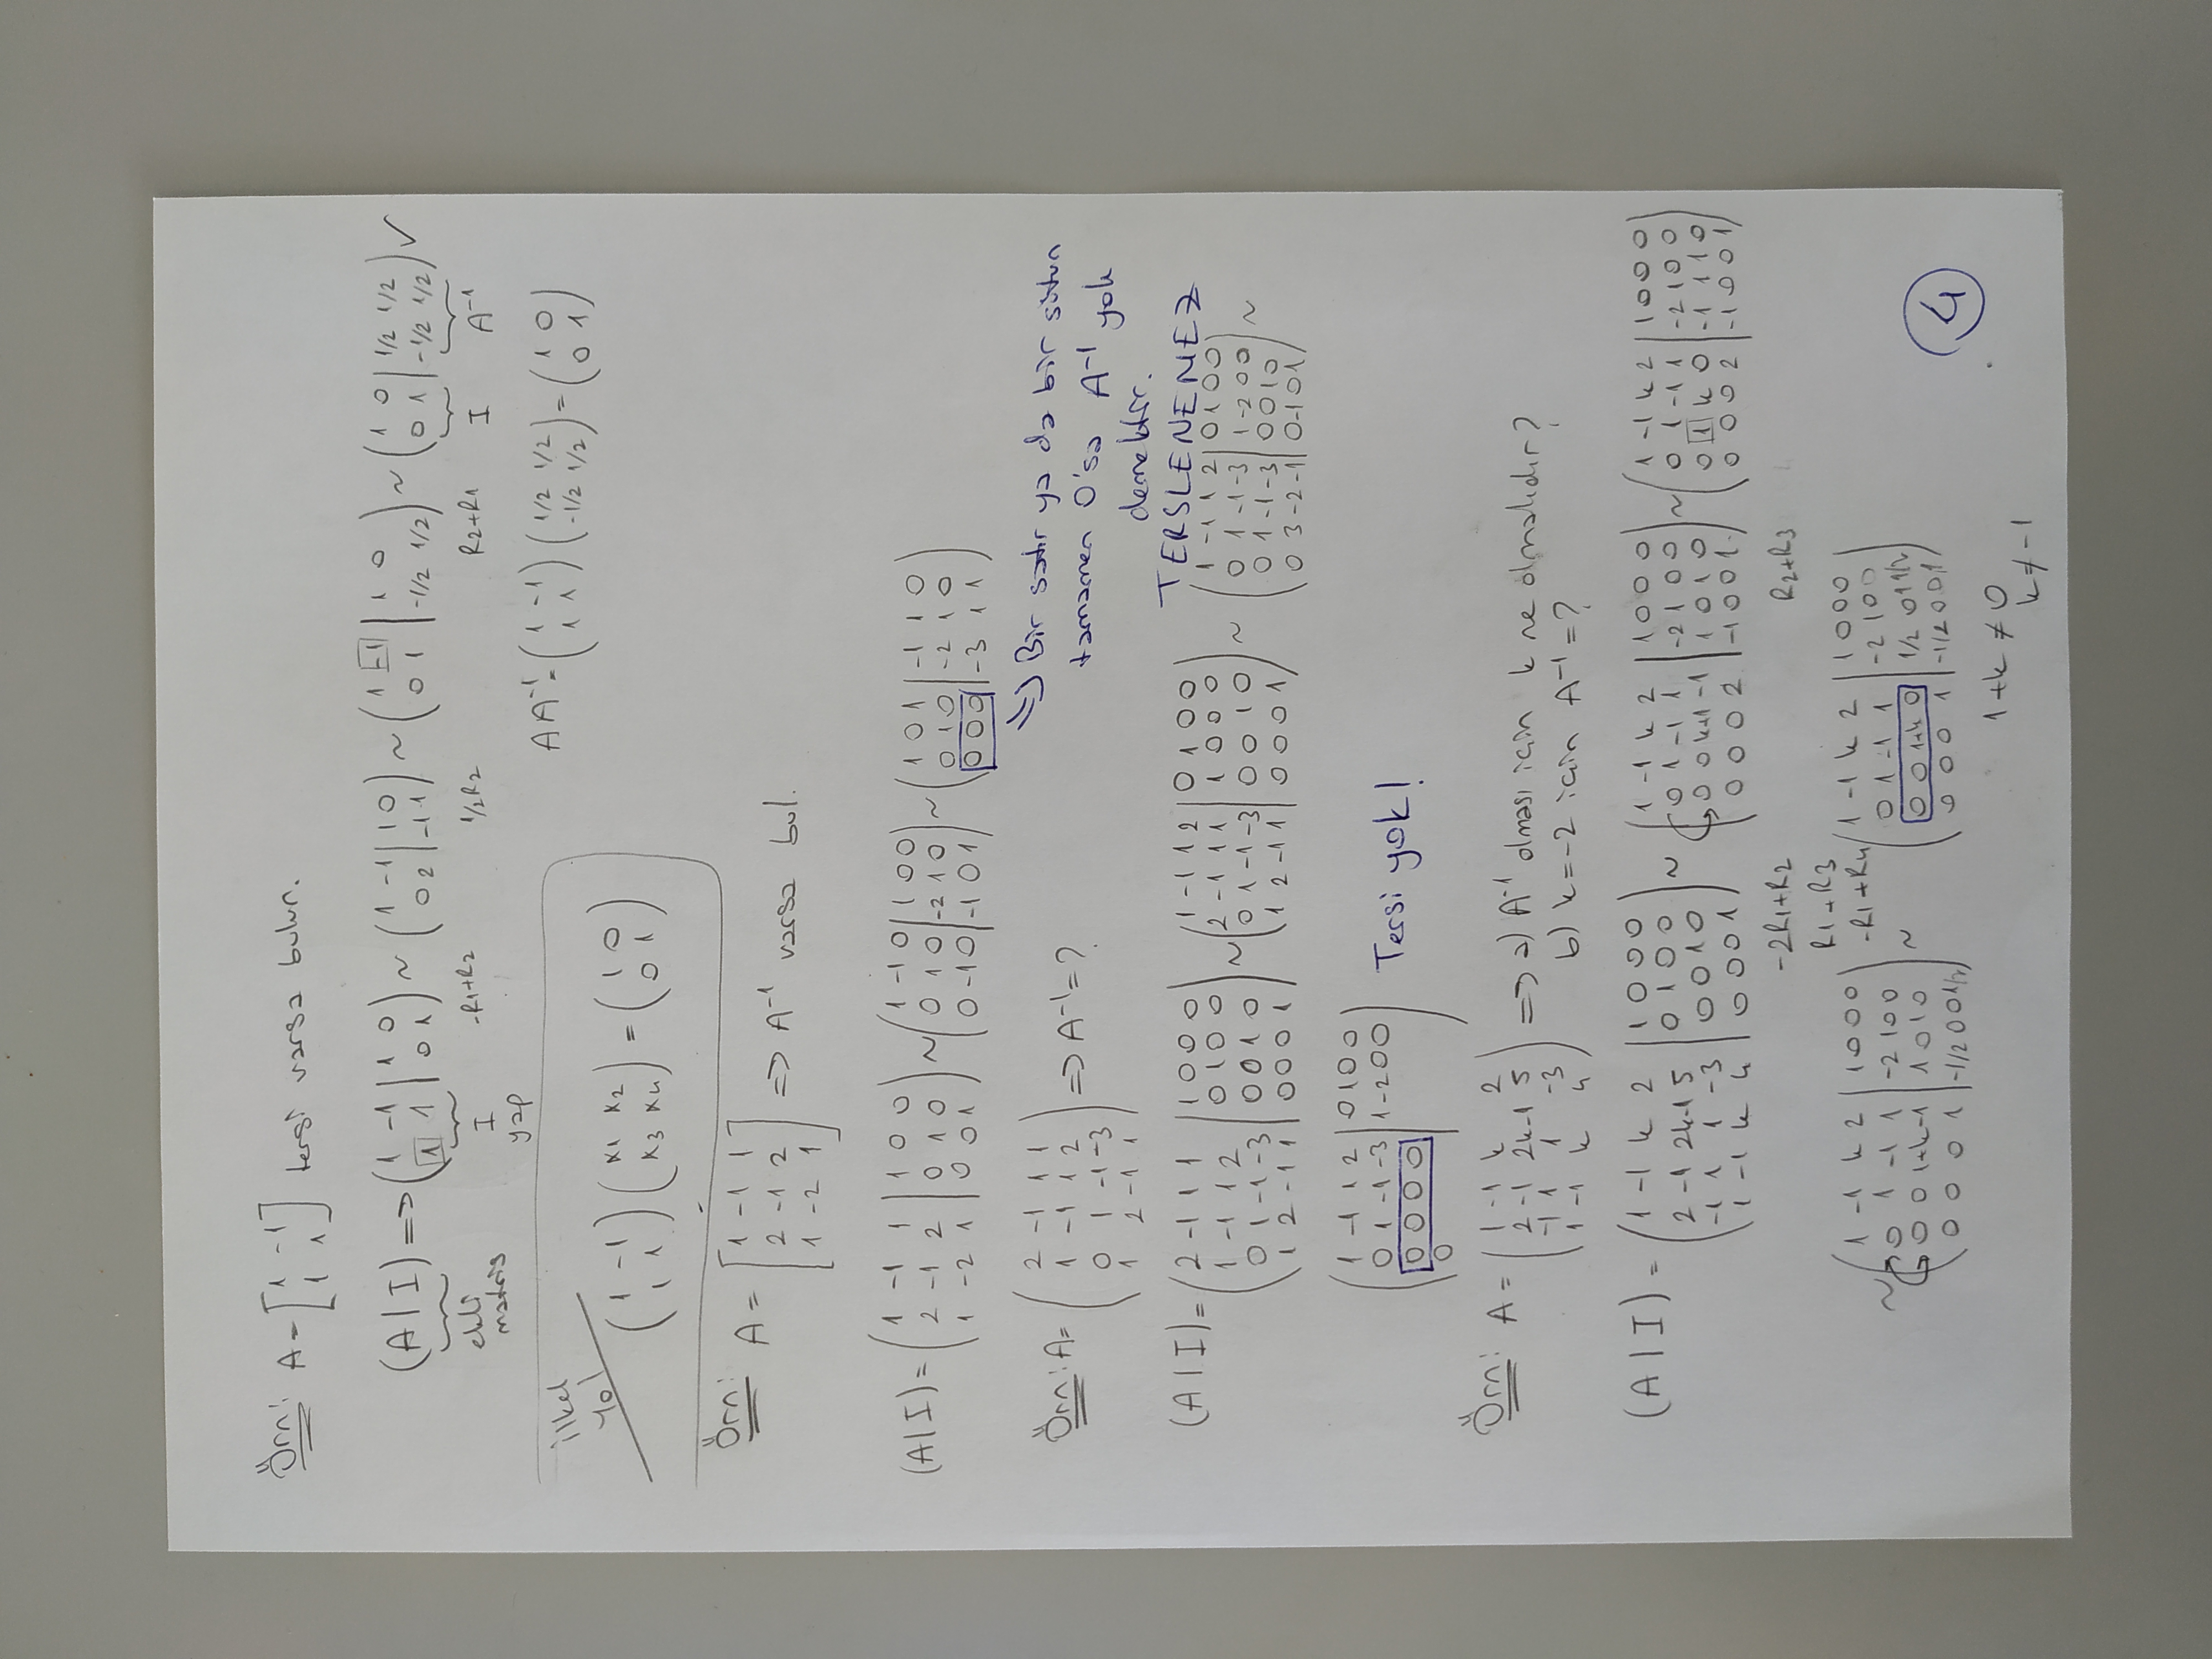 Örn: A = [1 -1; 1 1] tersi varsa bulun.
(A | I) => (1 -1 | 1 0; 1 1 | 0 1) ~ (1 -1 | 1 0; 0 2 | -1 1) ~ (1 -1 | 1 0; 0 1 | -1/2 1/2) ~ (1 0 | 1/2 1/2; 0 1 | -1/2 1/2) ✓
ekli matris
I yap
-R1+R2
1/2 R2
R2+R1
I
A⁻¹
AA⁻¹ = (1 -1; 1 1) (1/2 1/2; -1/2 1/2) = (1 0; 0 1)
ilkel yol
(1 -1; 1 1) (x1 x2; x3 x4) = (1 0; 0 1)
Örn: A = [1 -1 1; 2 -1 2; 1 -2 1] => A⁻¹ varsa bul.
(A | I) = (1 -1 1 | 1 0 0; 2 -1 2 | 0 1 0; 1 -2 1 | 0 0 1) ~ (1 -1 0 | 1 0 0; 0 1 0 | -2 1 0; 0 -1 0 | -1 0 1) ~ (1 0 1 | -1 1 0; 0 1 0 | -2 1 0; 0 0 0 | -3 1 1)
Bir satır ya da bir sütun
tamamen 0'sa A⁻¹ yok
demektir.
TERSLENEMEZ
Örn: A = (2 -1 1 1; 1 -1 1 2; 0 1 -1 -3; 1 2 -1 1) => A⁻¹ = ?
(A | I) = (2 -1 1 1 | 1 0 0 0; 1 -1 1 2 | 0 1 0 0; 0 1 -1 -3 | 0 0 1 0; 1 2 -1 1 | 0 0 0 1) ~ (1 -1 1 2 | 0 1 0 0; 2 -1 1 1 | 1 0 0 0; 0 1 -1 -3 | 0 0 1 0; 1 2 -1 1 | 0 0 0 1) ~ (1 -1 1 2 | 0 1 0 0; 0 1 -1 -3 | 1 -2 0 0; 0 1 -1 -3 | 0 0 1 0; 0 3 -2 -1 | 0 -1 0 1) ~
(1 -1 1 2 | 0 1 0 0; 0 1 -1 -3 | 1 -2 0 0; 0 0 0 0 |; 0 |) Tersi yok!
Örn: A = (1 -1 k 2; 2 -1 2k-1 5; -1 1 1 -3; 1 -1 k 4) => a) A⁻¹ olması için k ne olmalıdır?
b) k=-2 için A⁻¹ = ?
(A | I) = (1 -1 k 2 | 1 0 0 0; 2 -1 2k-1 5 | 0 1 0 0; -1 1 1 -3 | 0 0 1 0; 1 -1 k 4 | 0 0 0 1) ~ (1 -1 k 2 | 1 0 0 0; 0 1 -1 1 | -2 1 0 0; 0 0 k+1 -1 | 1 0 1 0; 0 0 0 2 | -1 0 0 1) ~ (1 -1 k 2 | 1 0 0 0; 0 1 -1 1 | -2 1 0 0; 0 1 k 0 | -1 1 1 0; 0 0 0 2 | -1 0 0 1)
-2R1+R2
R1+R3
-R1+R4
R2+R3
~ (1 -1 k 2 | 1 0 0 0; 0 1 -1 1 | -2 1 0 0; 0 0 1+k -1 | 1 0 1 0; 0 0 0 1 | -1/2 0 0 1/2) ~ (1 -1 k 2 | 1 0 0 0; 0 1 -1 1 | -2 1 0 0; 0 0 1+k 0 | 1/2 0 1 1/2; 0 0 0 1 | -1/2 0 0 1)
1+k ≠ 0
k ≠ -1
4